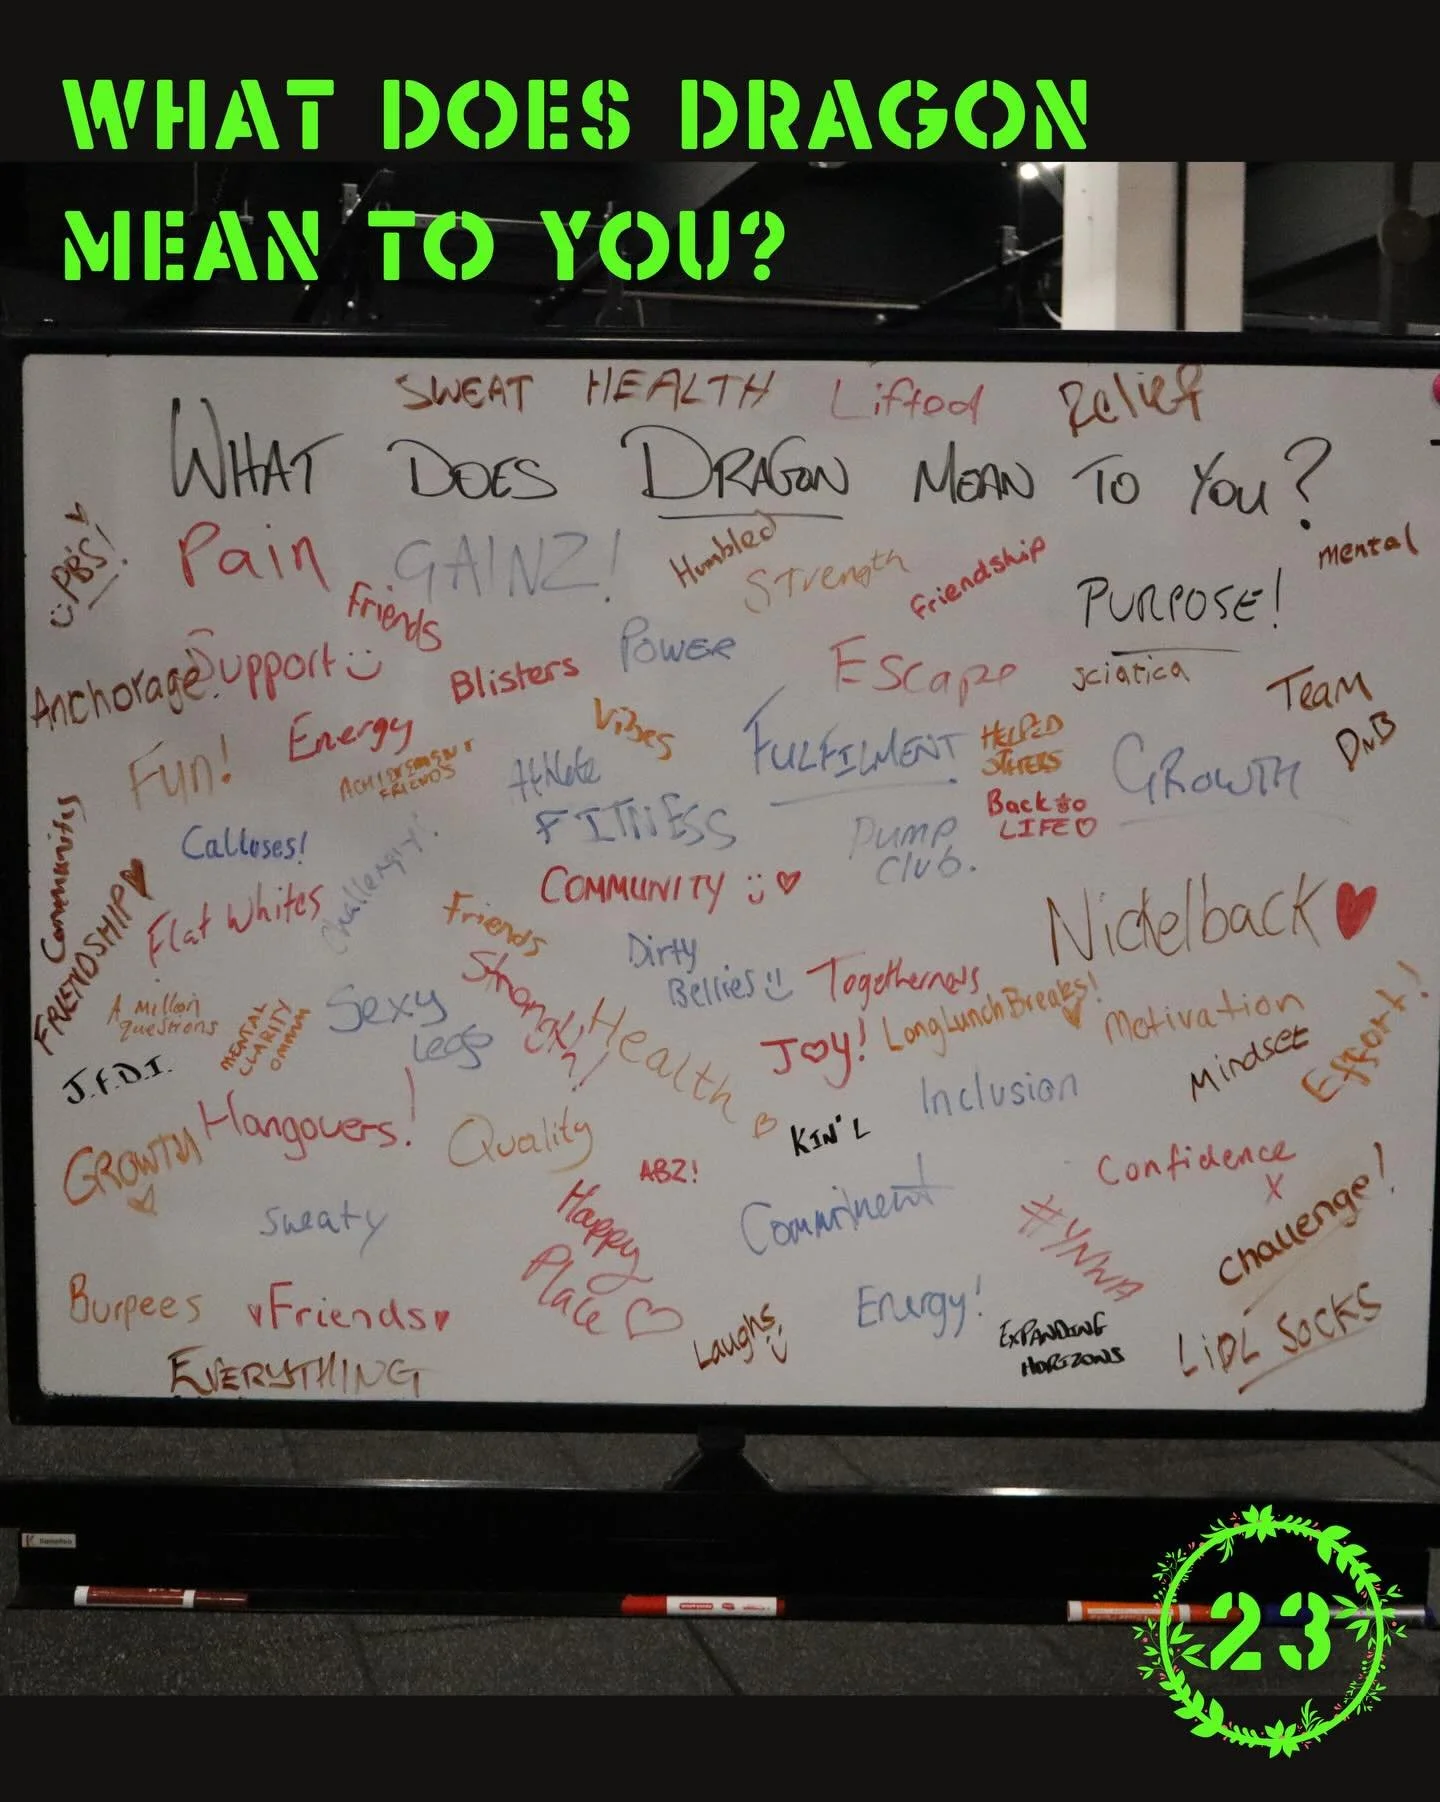 WHAT DOES DRAGON
MEAN TO YOU?
SWEAT HEALTH Lifted Relief
WHAT DOES DRAGON MEAN TO YOU?
PB'S!
Pain
GAINZ!
Humbled
Strength
Friendship
mental
Friends
PURPOSE!
Support
POWER
Anchorage
Blisters
Escape
sciatica
Team
DnB
Energy
Vibes
FULFILMENT
HELPED
OTHERS
GROWTH
Fun!
FRIENDS
Athlete
FITNESS
Back to
LIFE
PUMP
CLUB.
Community
Calluses!
COMMUNITY
Nickelback
FRIENDSHIP
Flat Whites
Friends
Dirty
Bellies
Togetherness
A million
questions
MENTAL
CLARITY
OMMM
Sexy
Legs
Health
JOY!
Long Lunch Breaks!
Motivation
Mindset
Effort!
J.F.D.I.
Inclusion
Hangovers!
Quality
KIN' L
GROWTH
ABZ!
Confidence
X
Sweaty
Happy
Place
Commitment
#YNWA
Challenge!
Burpees
Friends
Energy!
Laughs
EXPANDING
HORIZONS
LiDL SOCKS
EVERYTHING
23